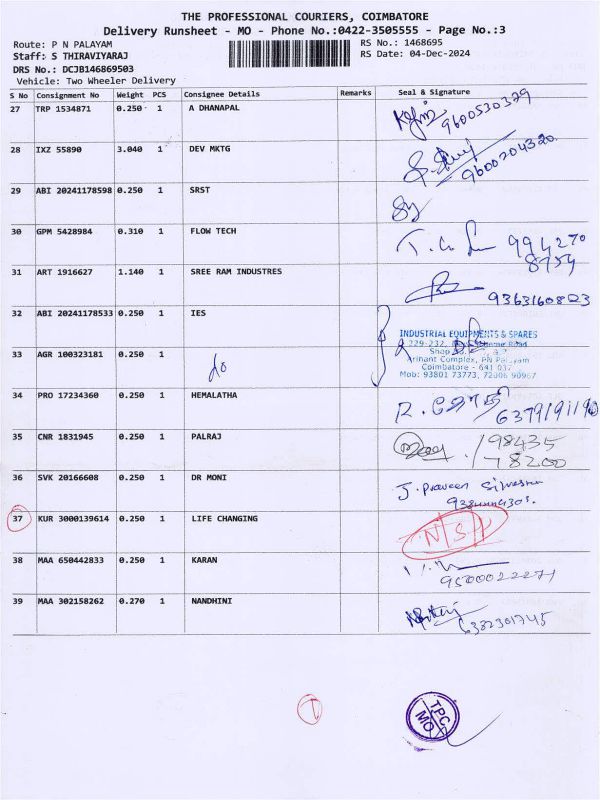 THE PROFESSIONAL COURIERS, COIMBATORE
Delivery Runsheet - MO - Phone No.:0422-3505555 - Page No.:3
Route: P N PALAYAM RS No.: 1468695
Staff: S THIRAVIYARAJ RS Date: 04-Dec-2024
DRS No.: DCJB146869503
Vehicle: Two Wheeler Delivery
S No Consignment No Weight PCS Consignee Details Remarks Seal & Signature
27 TRP 1534871 0.250 1 A DHANAPAL
9600530329
28 IXZ 55890 3.040 1 DEV MKTG
9600204320
29 ABI 20241178598 0.250 1 SRST
30 GPM 5428984 0.310 1 FLOW TECH
994270
8754
31 ART 1916627 1.140 1 SREE RAM INDUSTRES
9363160823
32 ABI 20241178533 0.250 1 IES
INDUSTRIAL EQUIPMENTS & SPARES
229-232,
Arihant Complex, PN Palayam
Coimbatore - 641 037
Mob: 93801 73773, 72006 90967
33 AGR 100323181 0.250 1 do
34 PRO 17234360 0.250 1 HEMALATHA
6379191190
35 CNR 1831945 0.250 1 PALRAJ
98435
78200
36 SVK 20166608 0.250 1 DR MONI
J. Praveen
37 KUR 3000139614 0.250 1 LIFE CHANGING
N/S
38 MAA 650442833 0.250 1 KARAN
9500022271
39 MAA 302158262 0.270 1 NANDHINI
6382301745
TPC
MO